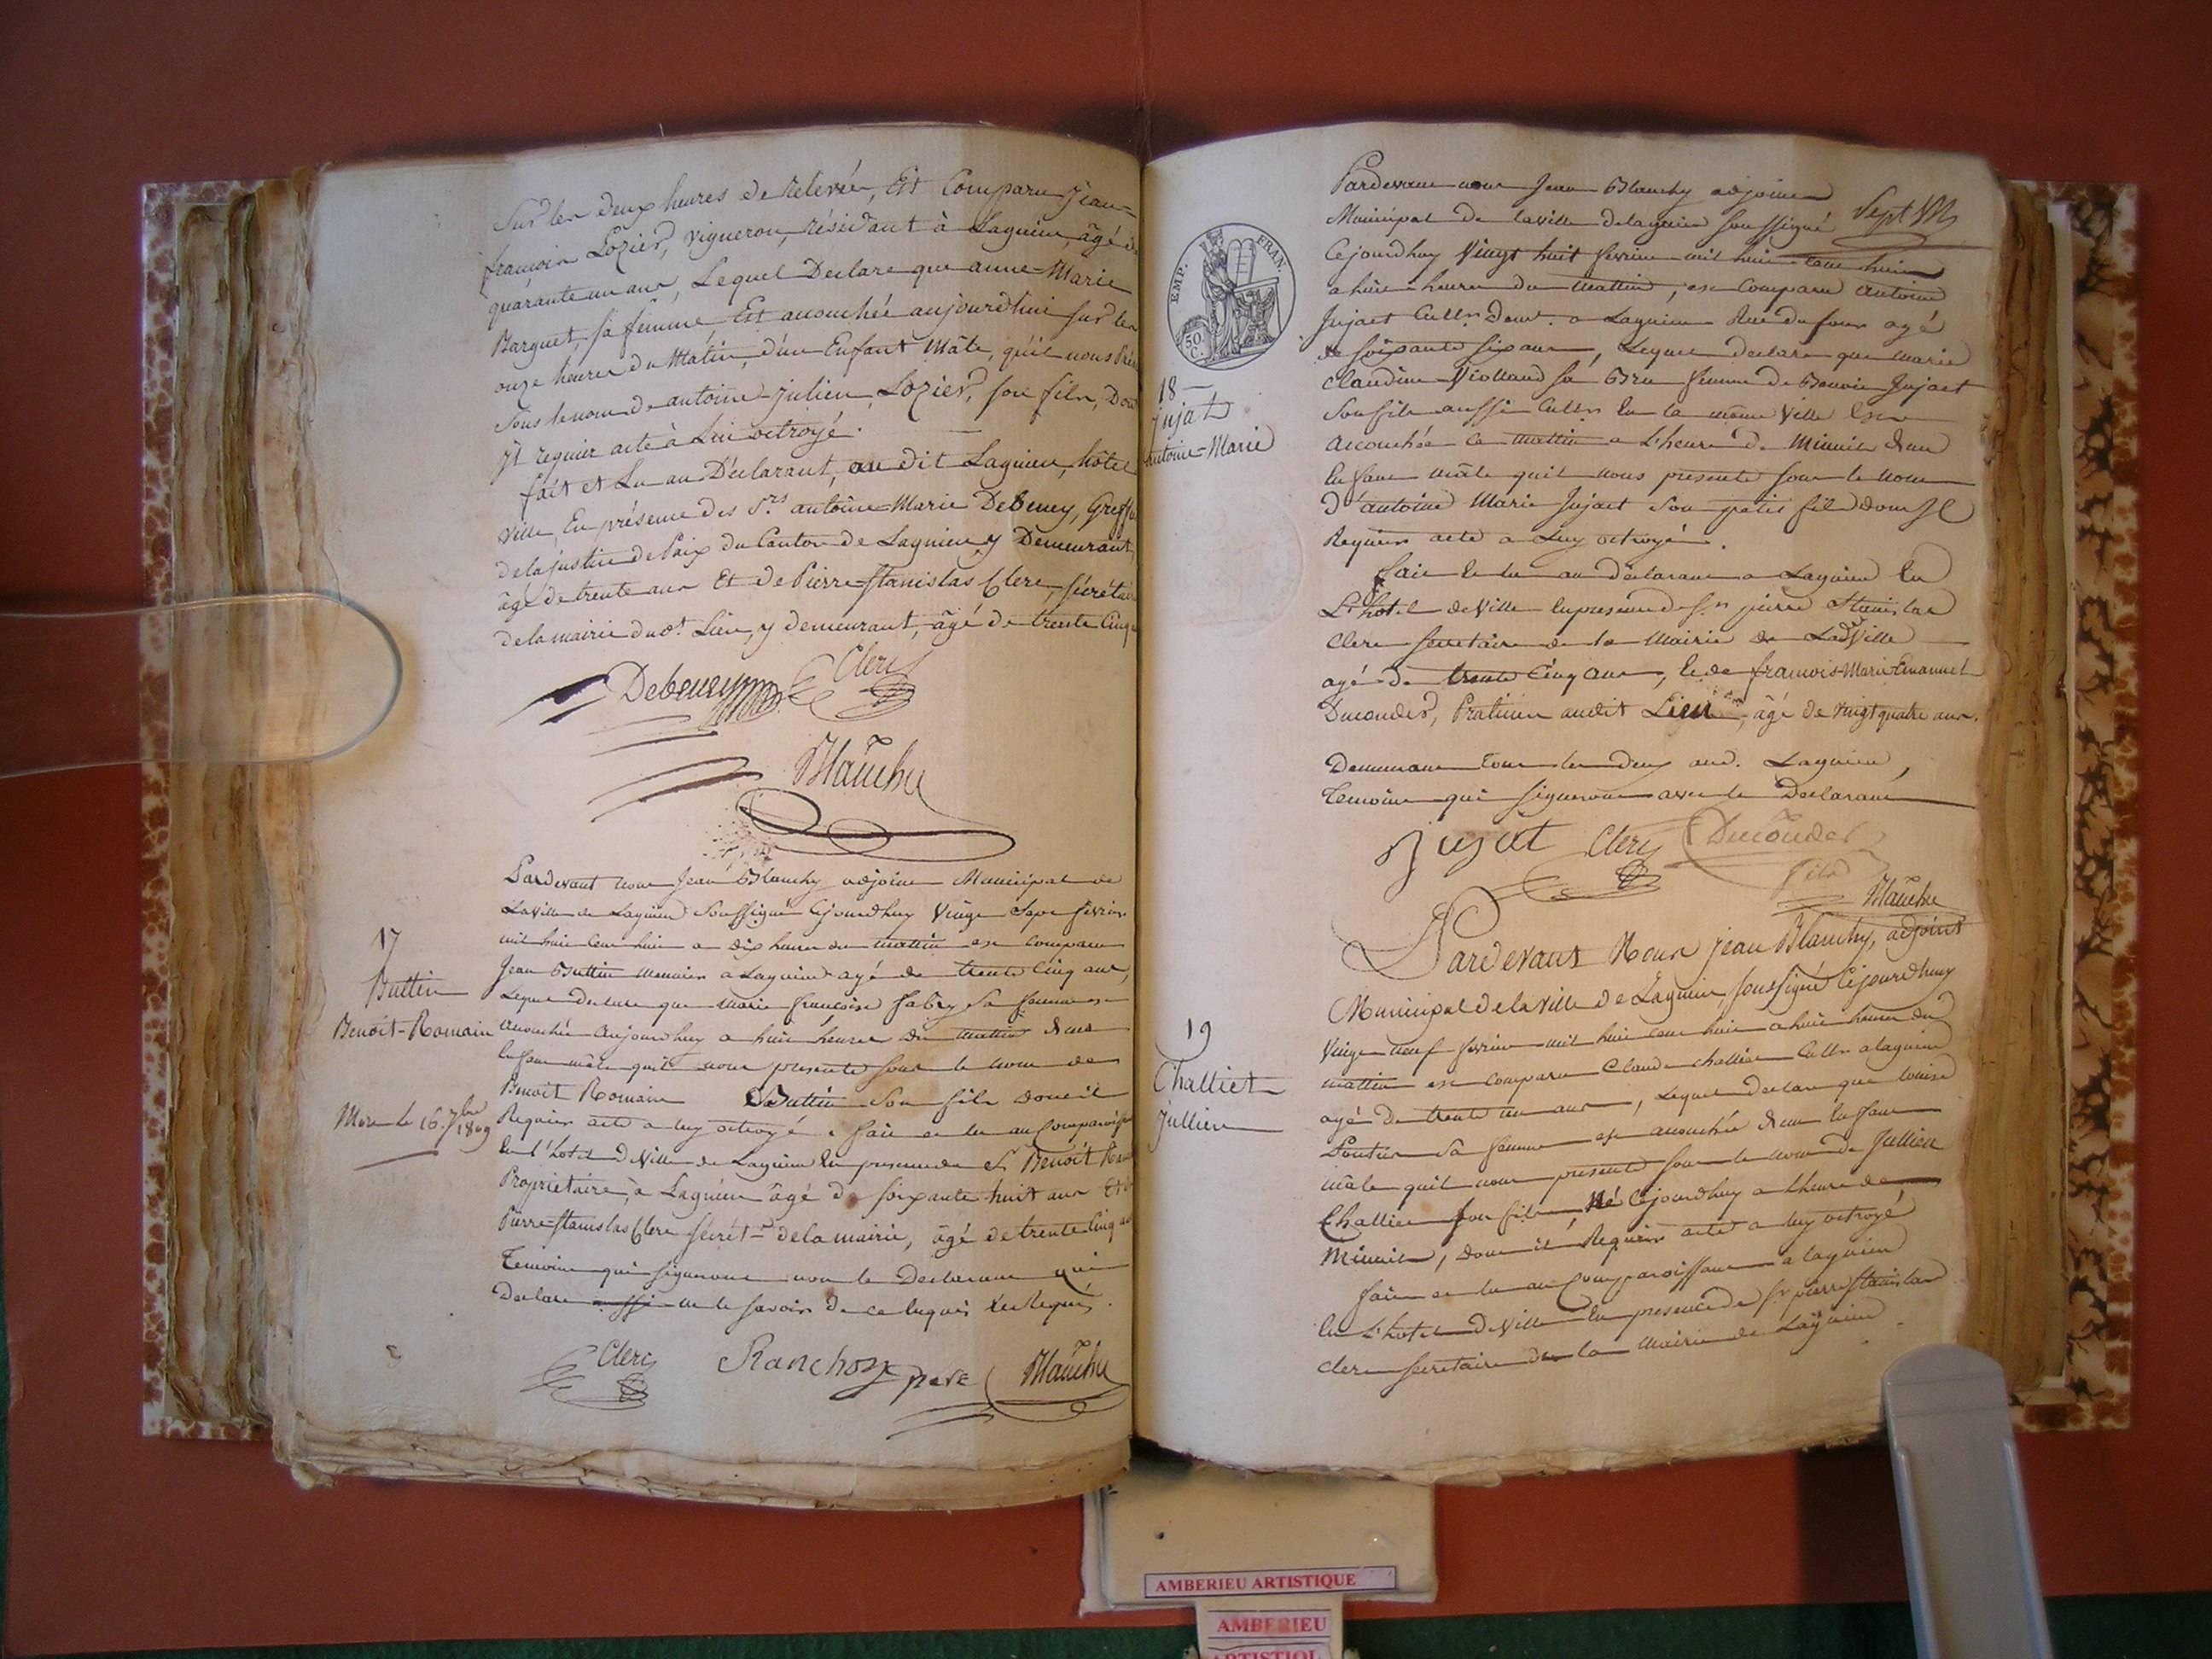 Sur les deux heures de relevée, Est Comparu Jean=
françois Lozier, vigneron, résidant à Lagnieu, âgé de
quarante un ans, Lequel Declare que anne=Marie
Barguet, sa femme, Est accouchée aujourd'hui sur les
onze heures du Matin, d'un Enfant Mâle, qu'il nous
Sous le nom de antoine-julien, Lozier, son fils, Dont
Il requier acte à Lui octroyé.
fait et Lu au Déclarant, au dit Lagnieu, hôtel
ville, En présence des S.rs antoine=Marie Debeney,
de la justice de Paix du Canton de Lagnieu, y Demeurant,
âgé de trente ans Et de Pierre-Stanislas Clerc,
de la mairie dud.t Lieu, y demeurant, âgé de trente Cinq
Debeney Clerc
Blanchy
17
Buttin
Benoît-Romain
Mort le 16. 7bre 1809
Pardevant nous Jean Blanchy adjoint Municipal de
La ville de Lagnieu Soussigné Cejourdhuy Vingt Sept fevrier
mil huit Cent huit a dix heures du mattin est comparu
Jean Buttin a Lagnieu agé de trente Cinq ans,
Lequel declare que marie françoise Sa femme est
accouchée aujourdhuy a huit heures du mattin d'un
Enfant mâle quil nous presente sous le nom de
Benoit Romain Buttin Son fils dont il
Requier acte a luy octroyé. fait et lu au
En l'hotel de Ville de Lagnieu En presence de Sr Benoît
Propriétaire, à Lagnieu âgé de soixante huit ans Et
Pierre=Stanislas Clerc Sécrét.re de la mairie, âgé de trente Cinq ans
Temoins qui signeront non le Declarant qui
Declare ne le savoir de ce Enquis
Clerc Ranchon pere Blanchy
EMP. FRAN.
50 C.
18
Jujat
Antoine=Marie
Pardevant nous Jean Blanchy adjoint
Municipal de la ville de lagnieu soussigné
Cejourdhuy Vingt huit fevrier mil huit cent huit
a huit heures du mattin, est Comparu Antoine
Jujat Cult.r Dem.t a Lagnieu Rue du four agé
de soixante six ans, Lequel declare que marie
Claudine Viollaud sa Bru femme de Benoit Jujat
Son fils aussi Cult.r En la même Ville Est
accouchée ce mattin a L'heure de Minuit d'un
Enfant mâle quil nous presente sous le nom
d'antoine Marie Jujat Son petit fils dont Il
Requier acte a Luy octroyé.
fait et lu au declarant a Lagnieu En
L'hotel de Ville En presence de Sr pierre Stanislas
Clerc secretaire de la Mairie de Lad. Ville
agé de trente Cinq ans, Et de françois-Marie-Emanuel
Ducouder, Praticien audit Lieu, âgé de vingt quatre ans.
Demeurant tous les deux aud. Lagnieu,
Temoins qui signeront avec le Declarant
Jujat Clerc Ducouder fils
Blanchy
19
Challiet
Jullien
Pardevant Nous jean Blanchy, adjoint
Municipal de la Ville de Lagnieu, soussigné Cejourdhuy
vingt neuf fevrier mil huit cent huit a huit heures du
mattin est comparu Claude challiet Cult.r a lagnieu
agé de trente un ans, Lequel declare que louise
Sa femme est accouchée d'un Enfant
mâle quil nous presente sous le nom de Jullien
Challiet son fils, Né Cejourdhuy a Lheure de
Minuit, dont il Requier acte a luy octroyé
fait et lu au Comparoissant a lagnieu
En L'hotel de Ville En presence de Sr pierre Stanislas
Clerc secretaire de la mairie de Lagnieu
AMBERIEU ARTISTIQUE
AMBERIEU